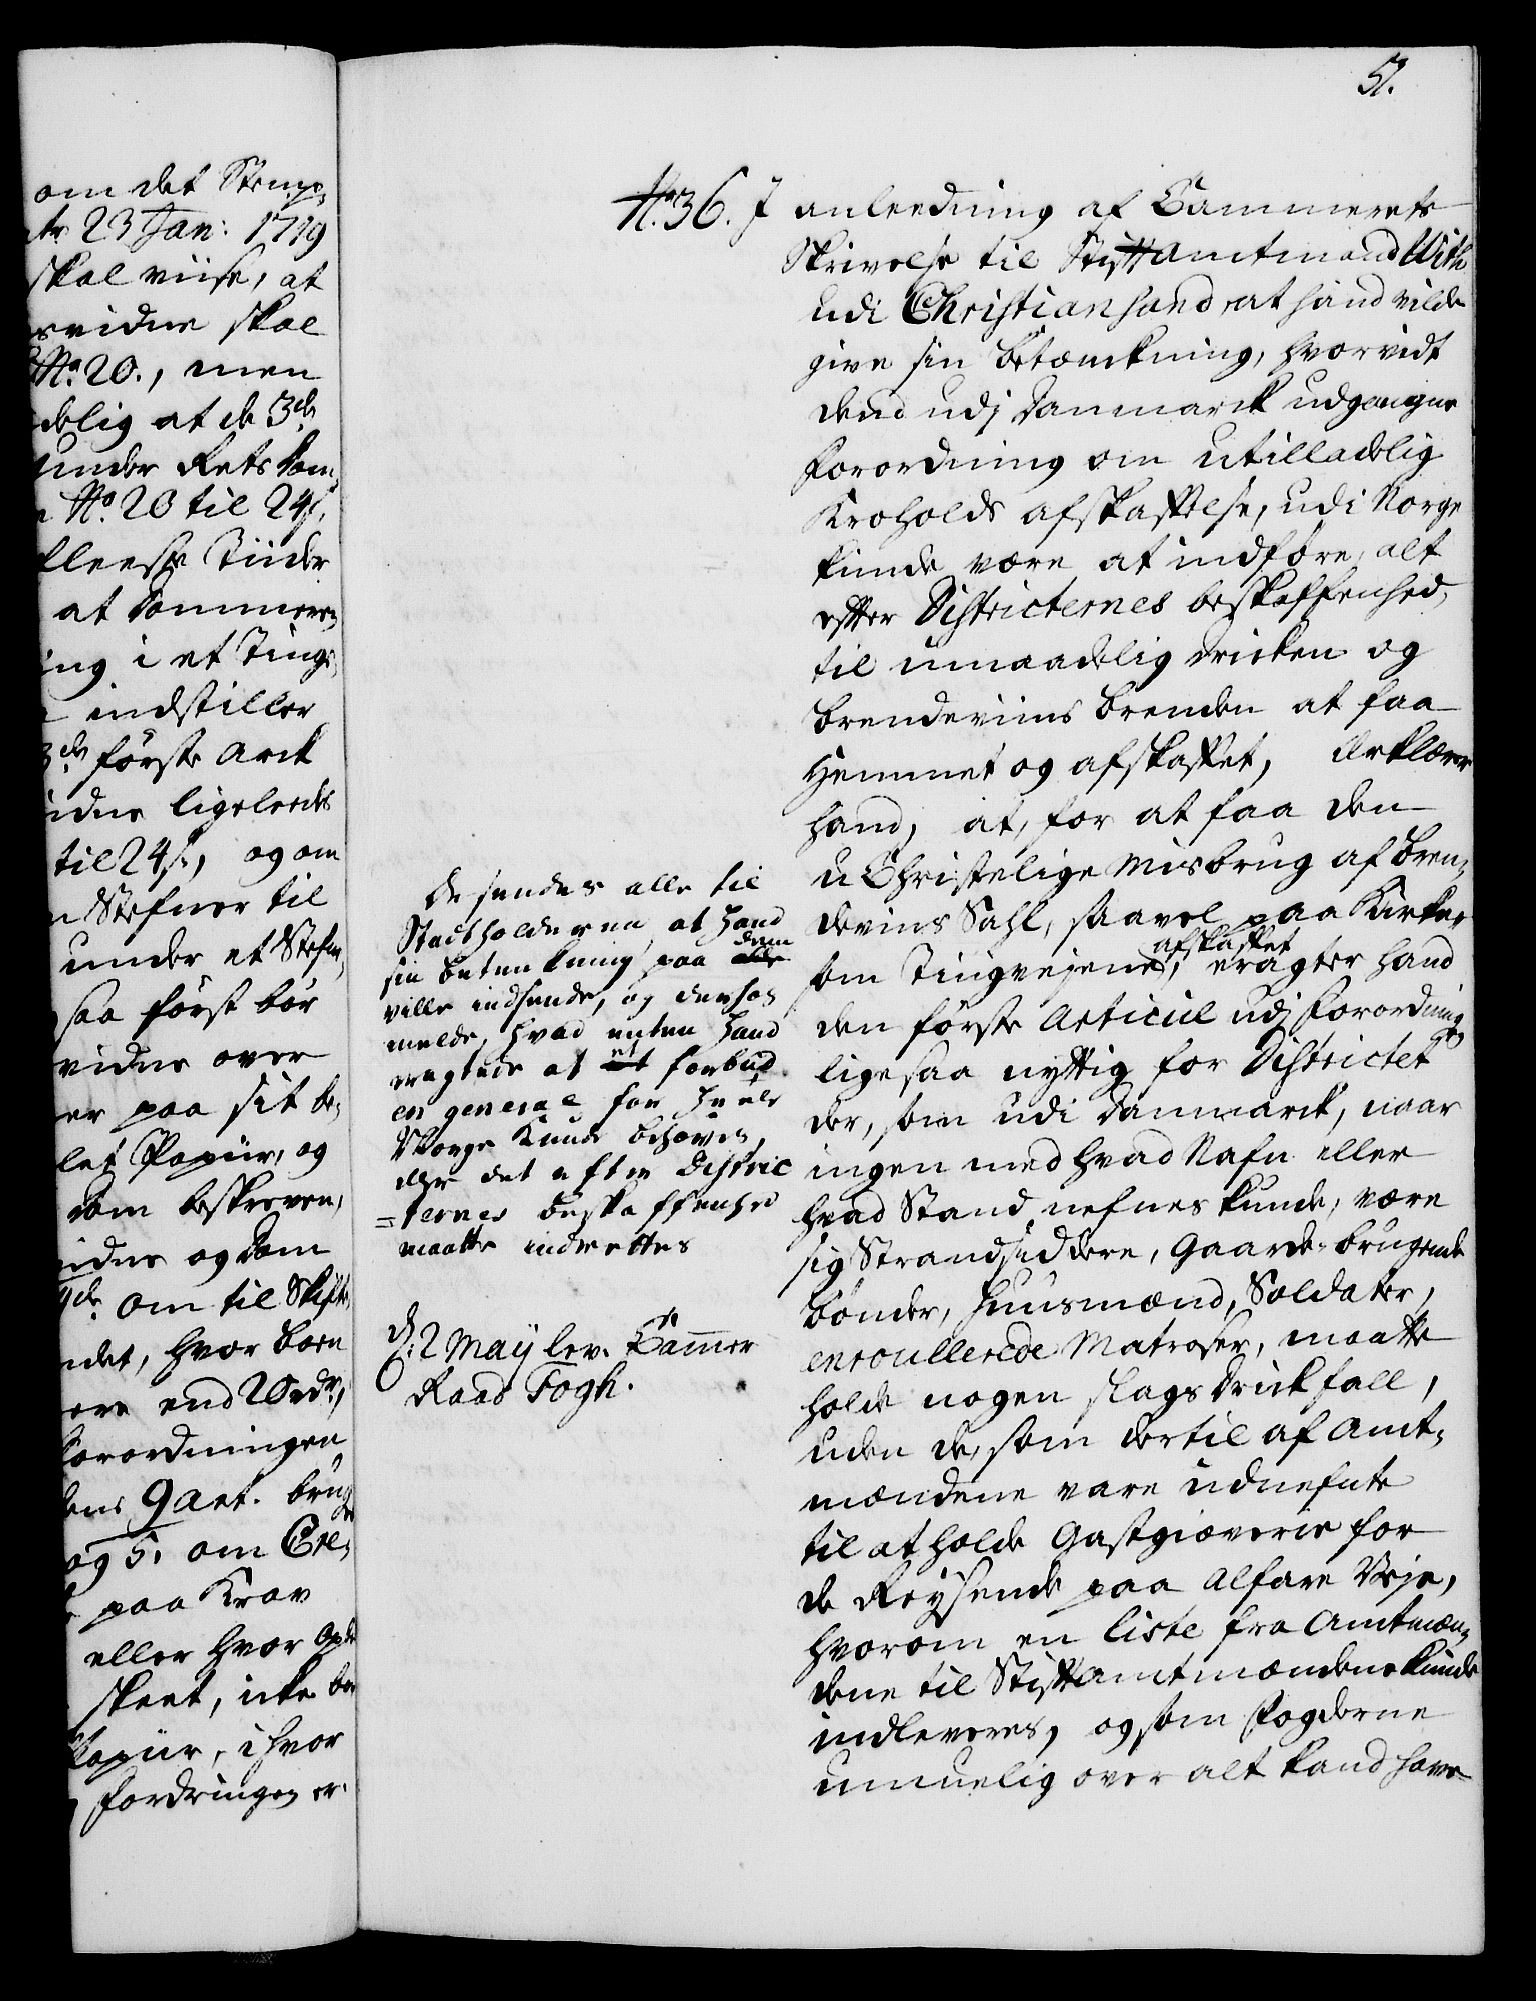 51.
om det Stemp¬
ts 23 Jan: 1719
skal viise, at
svidne skal
No. 20., men
delig at de 3de
under Rets Dom
No. 20 til 24 s.
lleeste Tiider
at Dommeren
ing i et Tings
indstiller
3de første Arck
idne ligeleedes
til 24 s., og om
Stefner til
under et Stefn¬
saa først bør
vidne over
er paa sit be¬
let Papiir, og
Dom beskreven,
idne og Dom
om til Skifte
ndet, hvor boen
ere end 20 rdr,
Forordningen
dens 9 Art. brug
og 5. om Cre¬
paa Krav
eller hvor Op
skeet, icke bør
Papiir, i hvor
fordringen er.
No. 36. J anleedning af Cammerets
Skrivelse til Stiftamtmand With
udi Christiansand, at hand vilde
give sin betænckning, hvorvidt
dend udj Danmarck udgangne
forordning om utilladelig
Kroholds afskaffelse, udi Norge
kunde være at indføre, alt
efter Districternes beskaffenhed,
til umaadelig dricken og
brendeviins brenden at faa
Hemmet og afskaffet, Erklærer
hand, at, for at faa den
uChristelige misbrug af bren¬
deviins Sahl, saavel paa Kirke
som Tingvejene, afskaffet eragter hand
den første Articul udj forordning
ligesaa nyttig for Districtet
der, som udi Danmarck, naar
ingen med hvad Nafn eller
hvad Stand nefnes kunde, være
sig Strandsiddere, Gaarde-brugende
bønder, Huusmænd, Soldater,
enroullerede Matroser, maatte
holde nogen slags Drickfall,
uden de, som dertil af Amt¬
mændene vare udnefnte
til at holde Gastgiæverie for
de Reysende paa alfare Veje,
hvorom en Liste fra Amtmæn¬
dene til Stiftamtmændene kunde
indleveres, og som Fogderne
umuelig over alt kand have
De sendes alle til
Stadtholderen, at hand
sin betenkning paa alle dem
ville indsende, og derhos
melde, hvad enten hand
eragtede at et forbud
en general for heele
Norge kunde behøves,
eller det efter Distric
=ternes beskaffenhed
maatte indrettes
d. 2 Maÿ lev. Cammer
Raad Fogh.